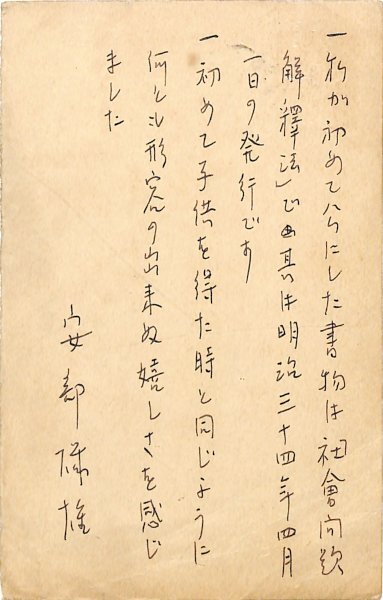 一私が初めて公にした書物は社會問題
解釋法」で其は明治三十四年四月
一日の発行です
一初めて子供を得た時と同じように
何とも形容の出来ぬ嬉しさを感じ
ました
安部磯雄